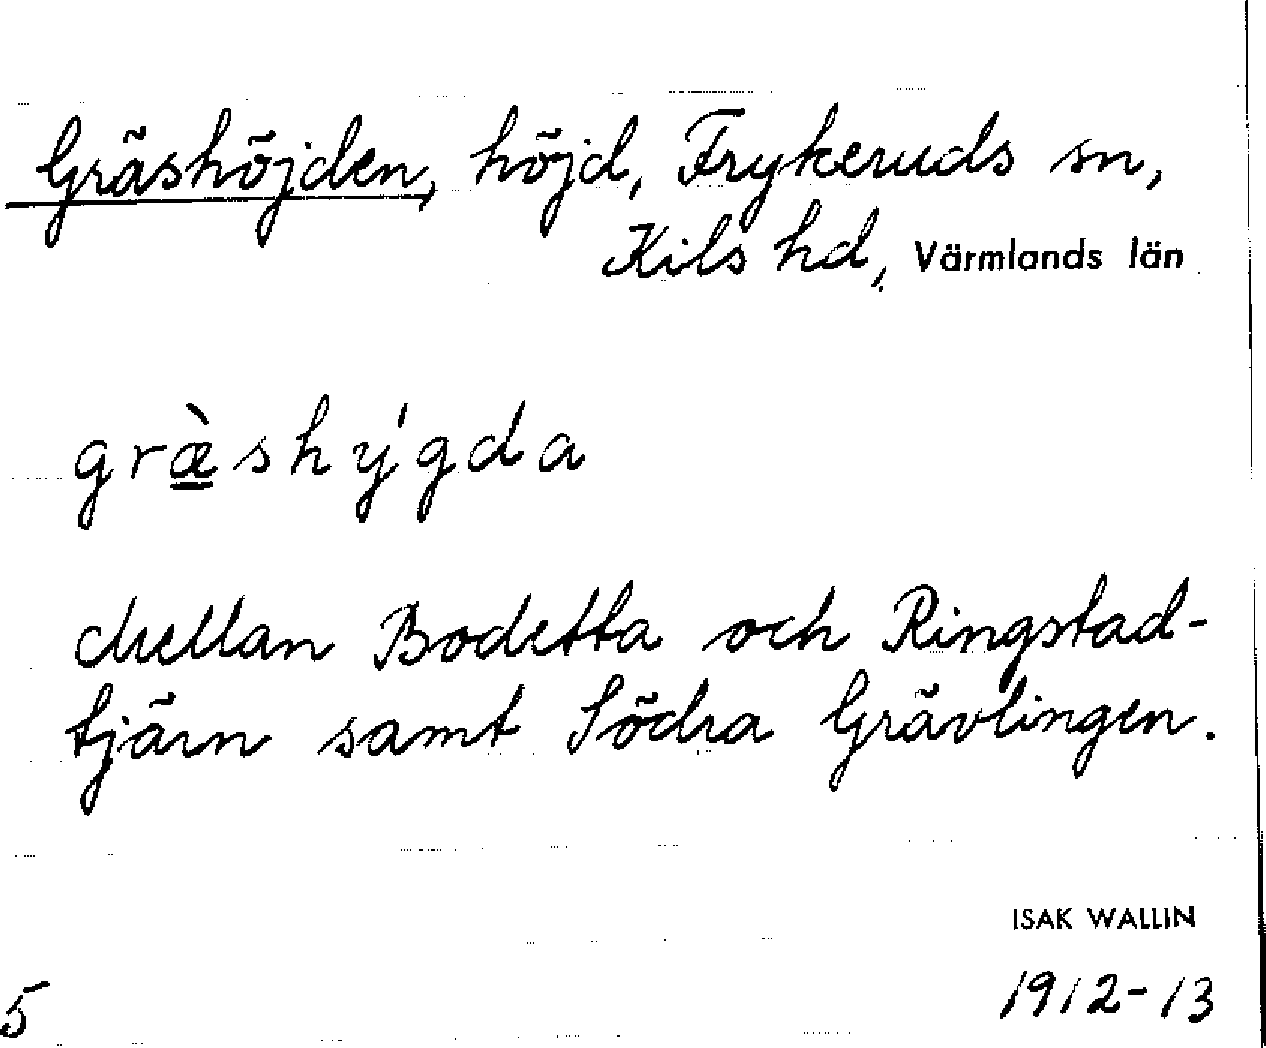 Gräshöjden, höjd, Frykeruds sn,
Kils hd, Värmlands län
græ̀shýgda
Mellan Bodetta och Ringstad-
tjärn samt Södra Grävlingen.
ISAK WALLIN
5
1912-13